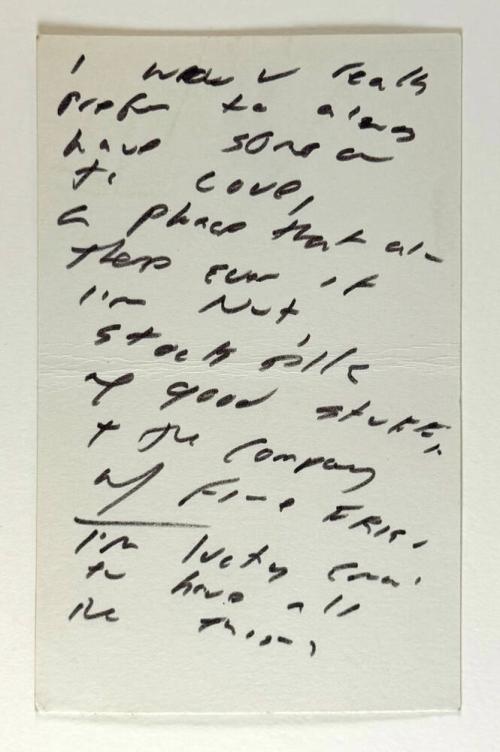 I would really
prefer to always
have someone
to love,
a place that al-
there even if
I'm not
stock pile
of good stuff,
+ the company
w/ fine
I'm lucky
to have all
the things